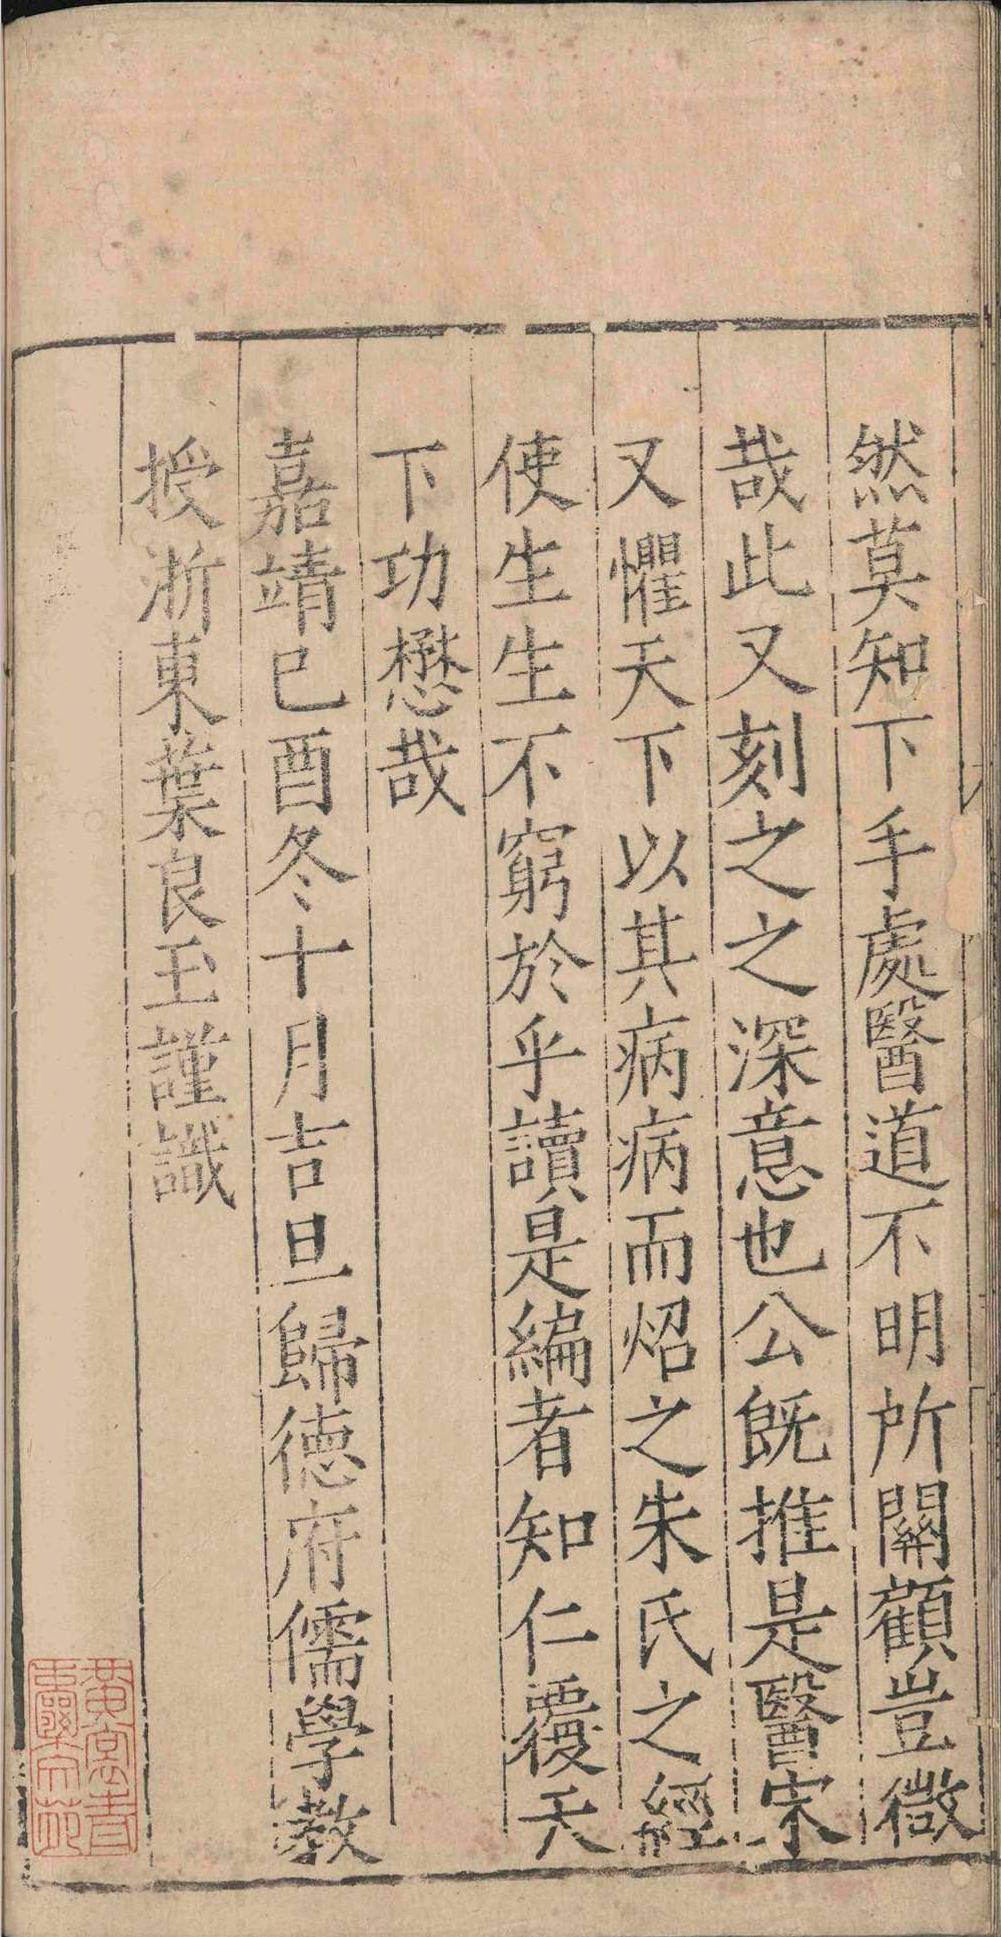 然莫知下手處醫道不明所關顧豈微
哉此又刻之之深意也公既推是醫宋
又懼天下以其病病而炤之朱氏之經
使生生不窮於乎讀是編者知仁覆天
下功懋哉
嘉靖巳酉冬十月吉旦歸德府儒學教
授浙東葉良玉謹識